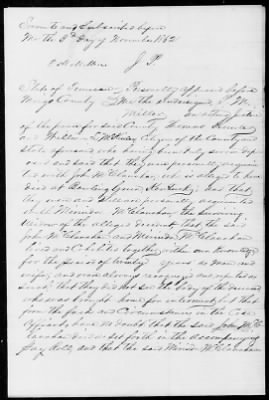 Sworn to and Subscribed before
Me the 3rd Day of November 1862
J. P.
State of Tennessee Personally appeared before
County Me the Undersigned
Miller an acting Justice
of the peace for said County Thomas
and William L. McKinley Citizens of the County and
State aforesaid who being severally sworn dep
oses and said that they were personally acquain
ted with John McClanahan who is alleged to have
died at Bowling Green Kentucky and that
they were and still are personally acquainted
with Minerva McClanahan the surviving
Widow of the alleged decedent, that the said
John McClanahan and Minerva McClanahan
lived and Cohabited together
for the period of twenty years as man and
wife, and were always recognized and reputed as
such, that they did not see the body of the deceased
who was brought home for interment, but that
from the facts and Circumstances in the Case
Affiants have no doubt that the said John Mc C
lanahan died as set forth in the accompanying
pay Roll, and that the said Minerva McClanahan